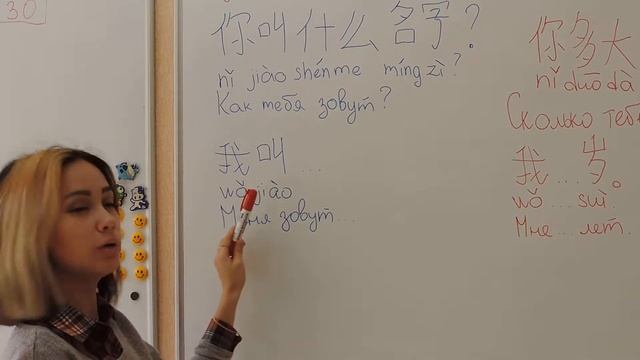 30
你叫什么名字?
nǐ jiào shénme míngzì?
Как тебя зовут?
我叫...
wǒ jiào
Меня зовут...
你多大
nǐ duō dà
Сколько тебе
我...岁
wǒ ... suì.
Мне ... лет.